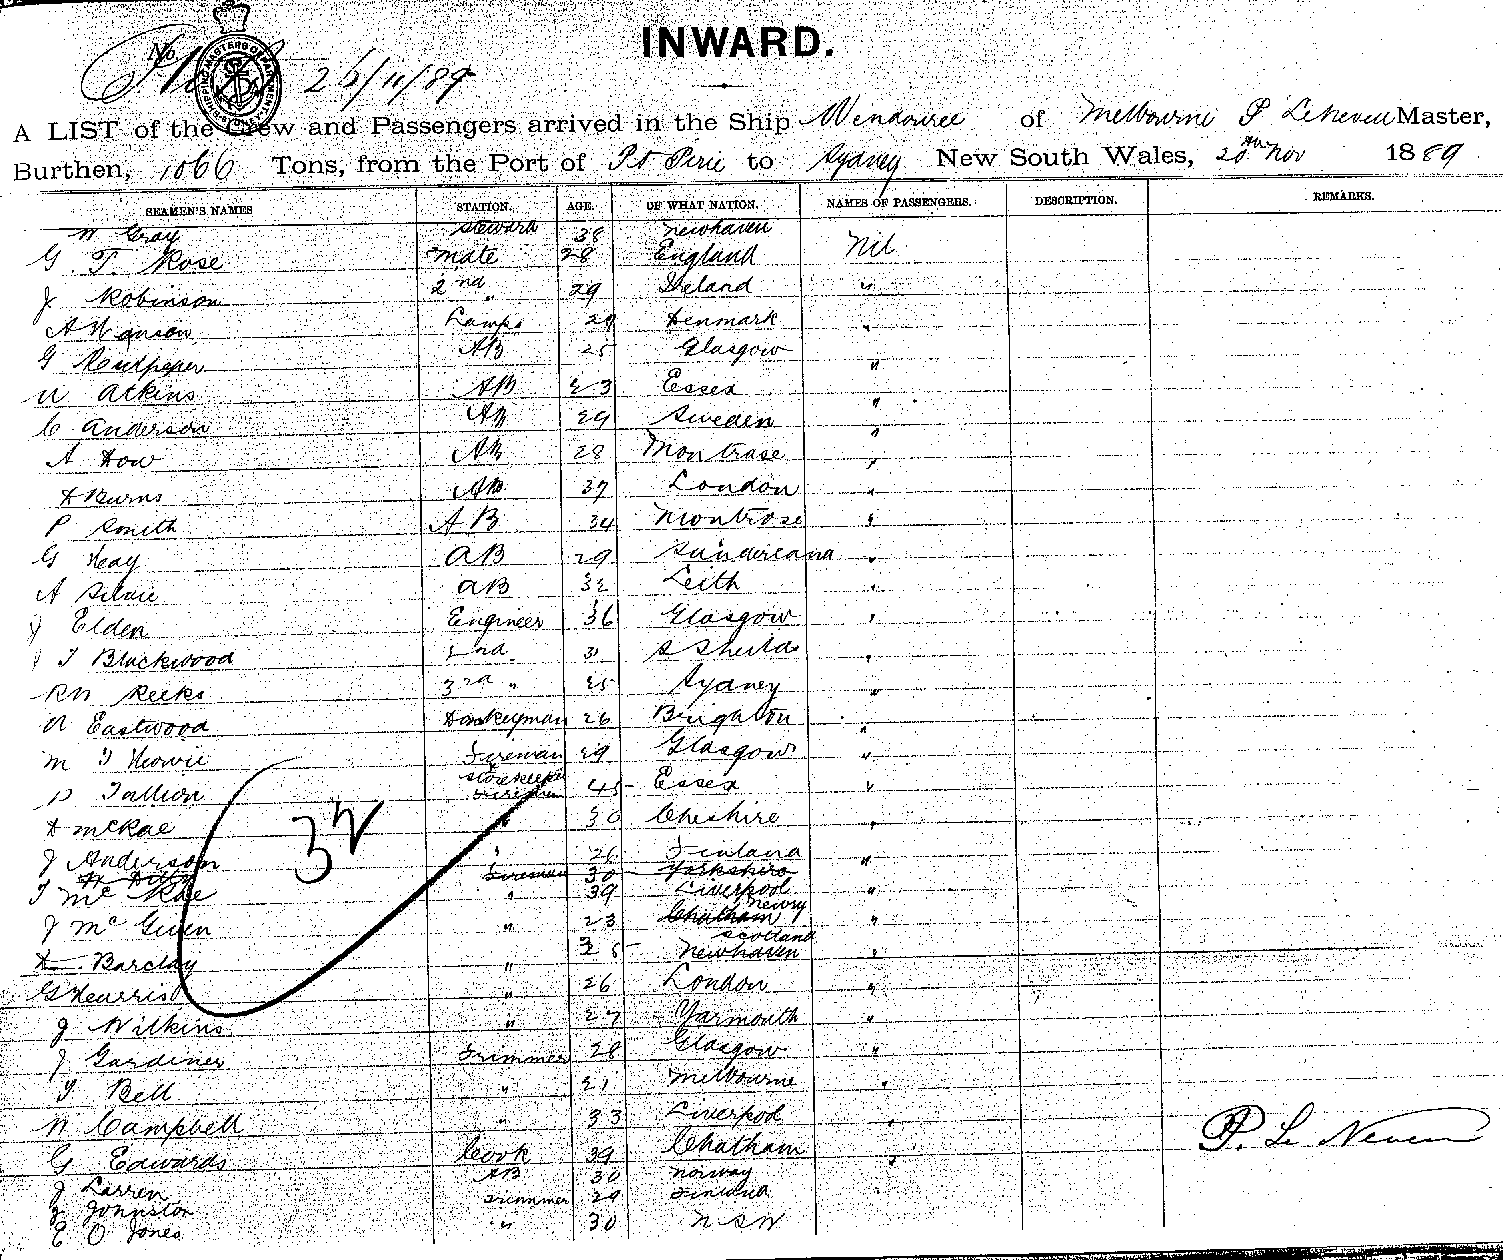 INWARD.
No 26/11/89
A LIST of the Crew and Passengers arrived in the Ship Wendouree of Melbourne P Le Neveu Master,
Burthen, 1066 Tons, from the Port of Pt Pirie to Sydney New South Wales, 20th Nov 1889
SEAMEN'S NAMES STATION. AGE. OF WHAT NATION. NAMES OF PASSENGERS. DESCRIPTION. REMARKS.
W Gray Steward 38 Newhaven Nil
G. T. Rose Mate 28 England
J Robinson 2nd " 29 Ireland "
A Hanson Lamps 29 Denmark "
G Culpeper AB 25 Glasgow "
W Atkins AB 23 Essex "
C Anderson AB 29 Sweden "
A Dow AB 28 Montrose "
D Burns AB 37 London "
P Smith AB 34 Montrose "
G Hay AB 29 Sunderland "
A AB 32 Leith "
J Elden Engineer 36 Glasgow "
J T Blackwood 2nd 31 S Sheilds "
RW Reeks 3rd " 25 Sydney "
W Eastwood Donkeyman 26 Brighton "
M T Howie Fireman 29 Glasgow "
D Tallion Storekeeper Fireman 45 Essex "
D McRae " 30 Cheshire "
J Anderson " 26 Finland "
Fireman 30 Yorkshire
T Mc Rae " 39 Liverpool "
J Mc Given " 23 Chatham Newry "
D Barclay " 35 Newhaven Scotland "
G " 26 London "
J Wilkins " 27 Yarmouth "
J Gardiner Trimmer 28 Glasgow "
T Bell " 21 Melbourne "
W Campbell " 33 Liverpool "
G Edwards Cook 39 Chatham "
J Larren AB 30 Norway
J Johnston Trimmer 29 Finland
E O Jones " 30 NSW
32
P. Le Neveu